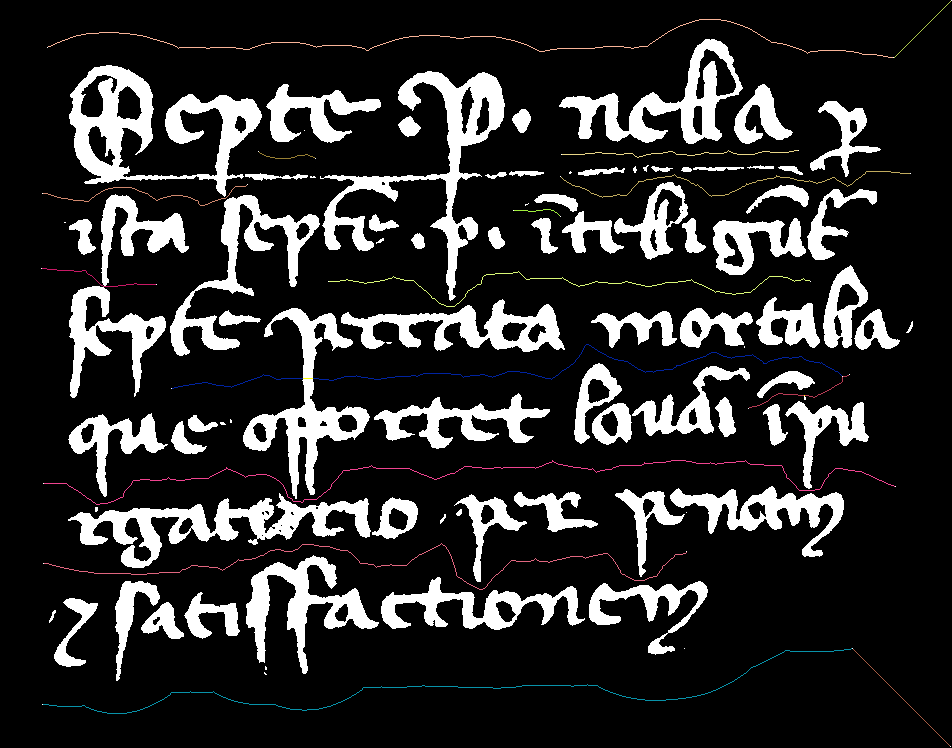 Septe .P. nella ꝑ
ista septē .p. ītelligūt̄
septē peccata mortalia
que opportet lauāi ī pu
rgatorio per penam
⁊ satisfactionem